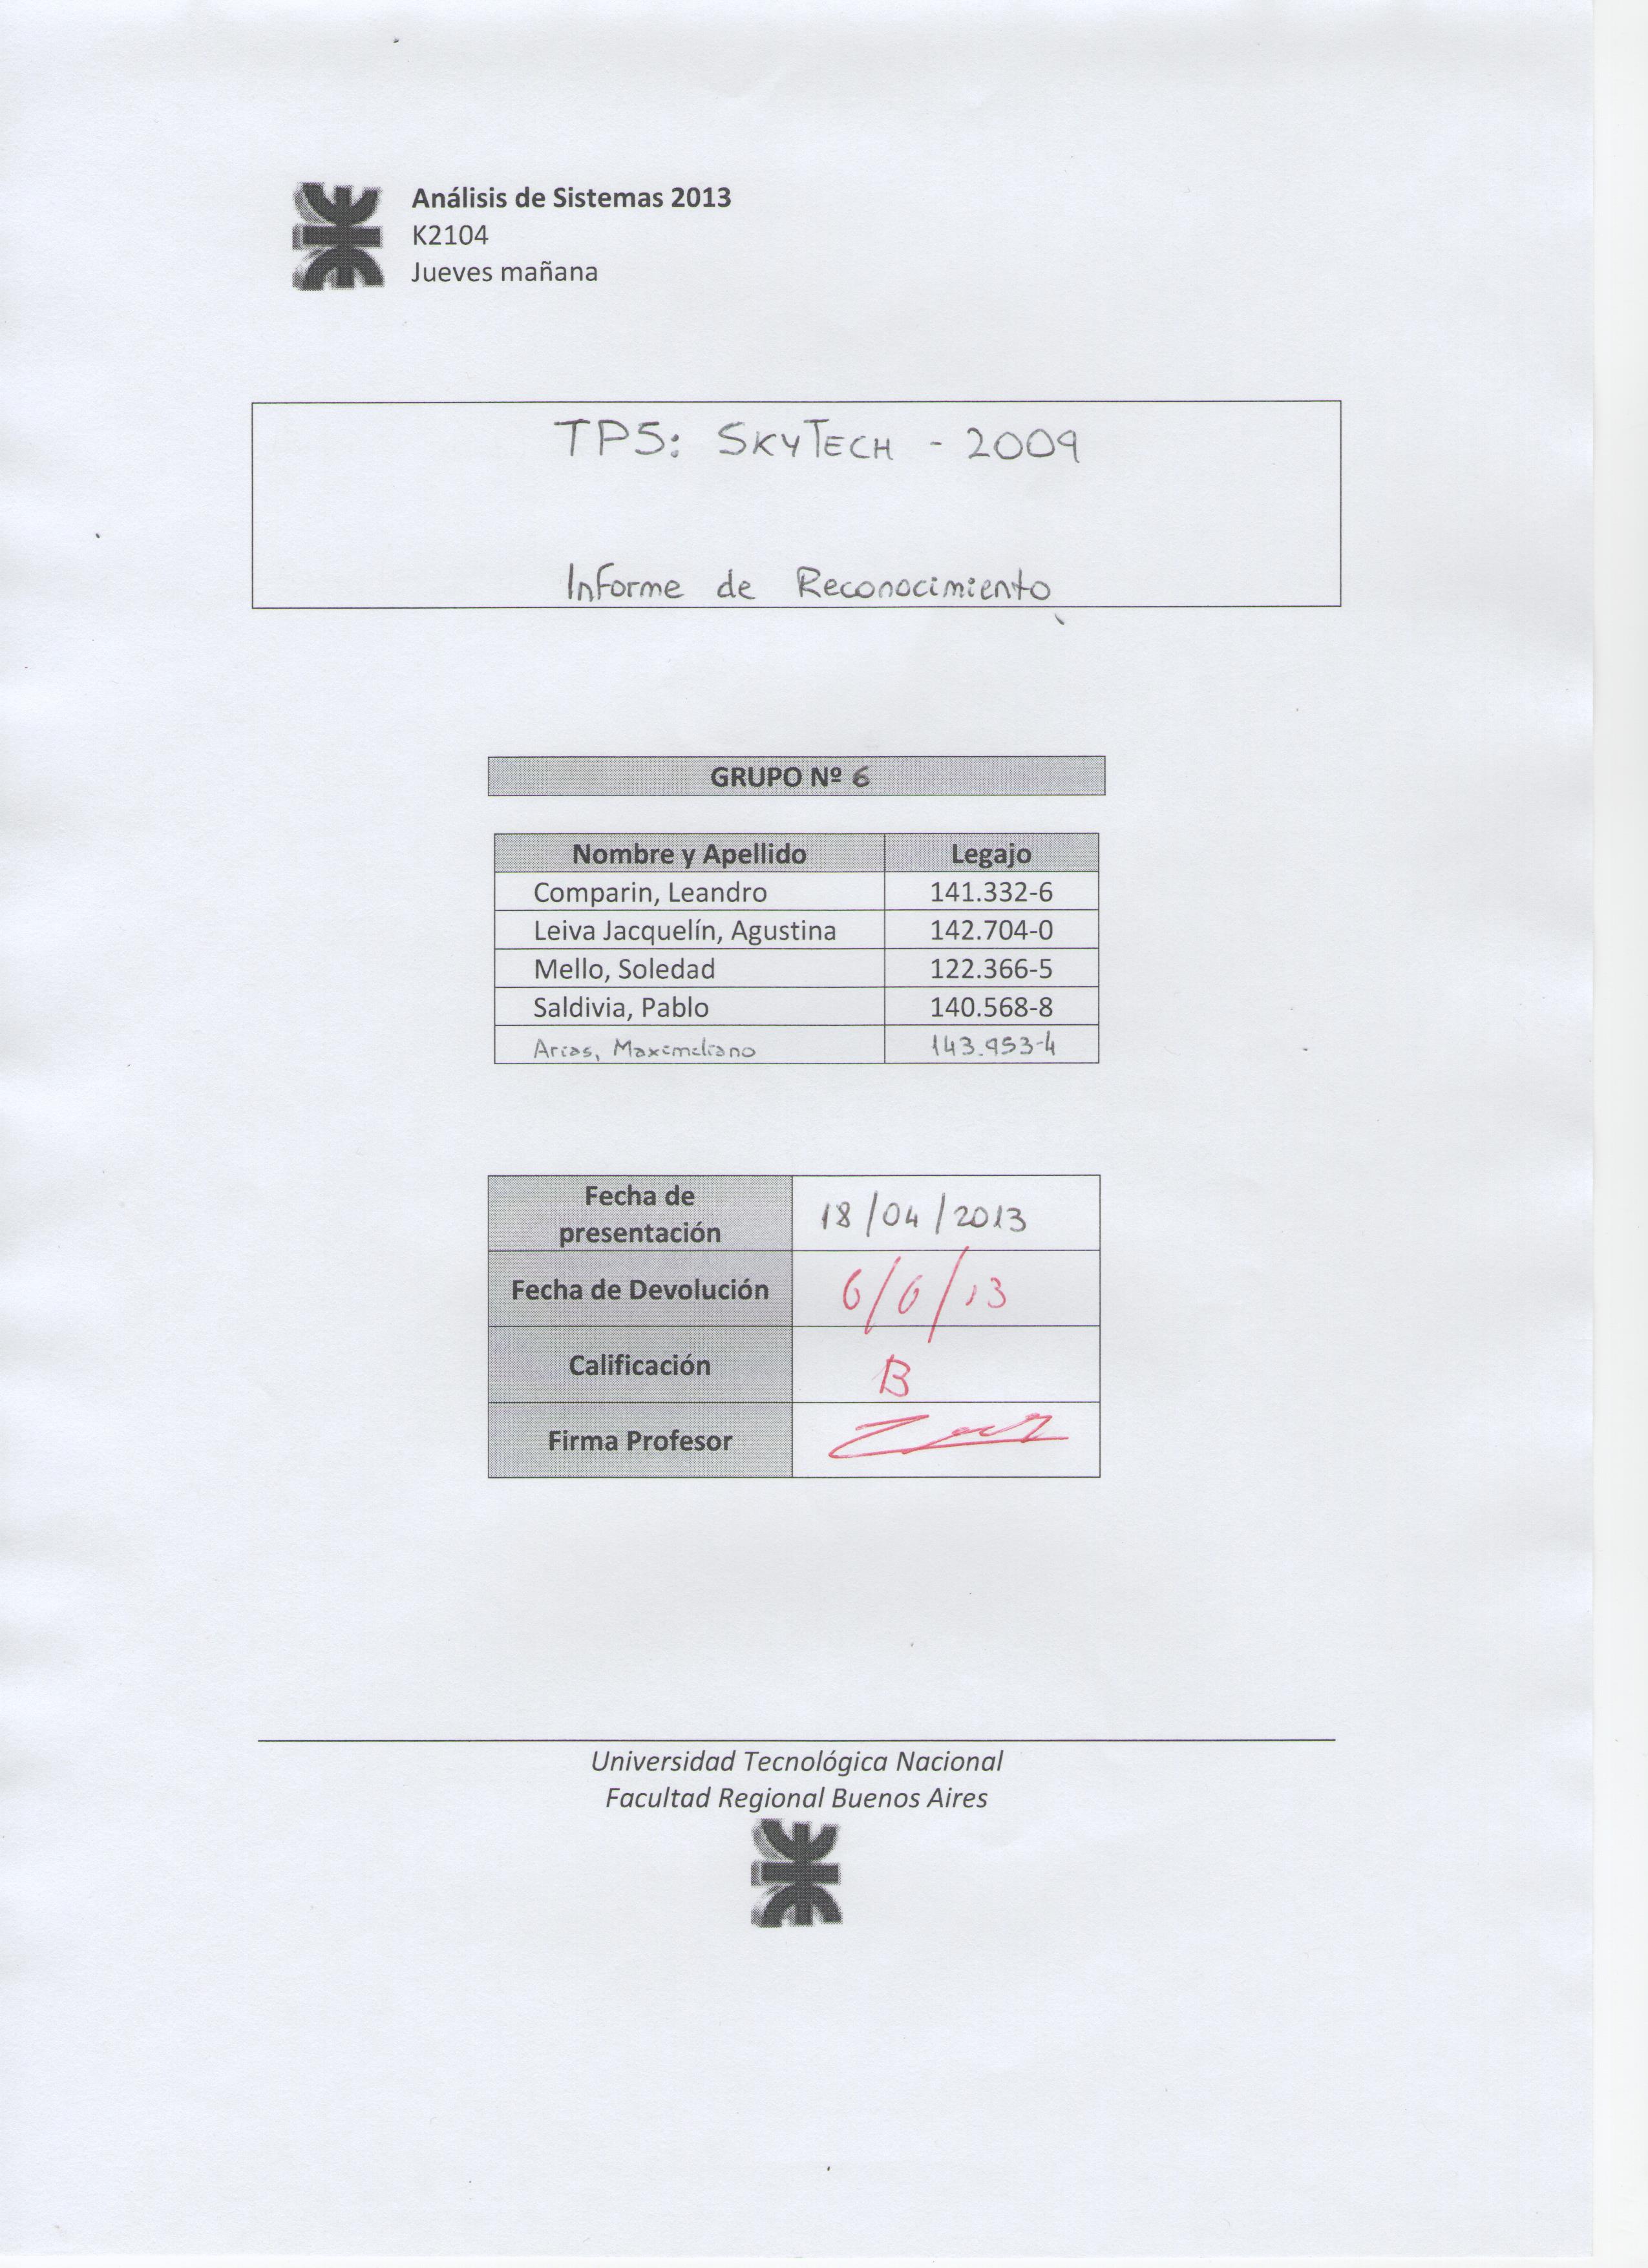 Análisis de Sistemas 2013
K2104
Jueves mañana
TP5: SKYTECH - 2009
Informe de Reconocimiento
GRUPO Nº 6
Nombre y Apellido Legajo
Comparin, Leandro 141.332-6
Leiva Jacquelín, Agustina 142.704-0
Mello, Soledad 122.366-5
Saldivia, Pablo 140.568-8
Arias, Maximiliano 143.953-4
Fecha de
presentación 18/04/2013
Fecha de Devolución 6/6/13
Calificación B
Firma Profesor
Universidad Tecnológica Nacional
Facultad Regional Buenos Aires